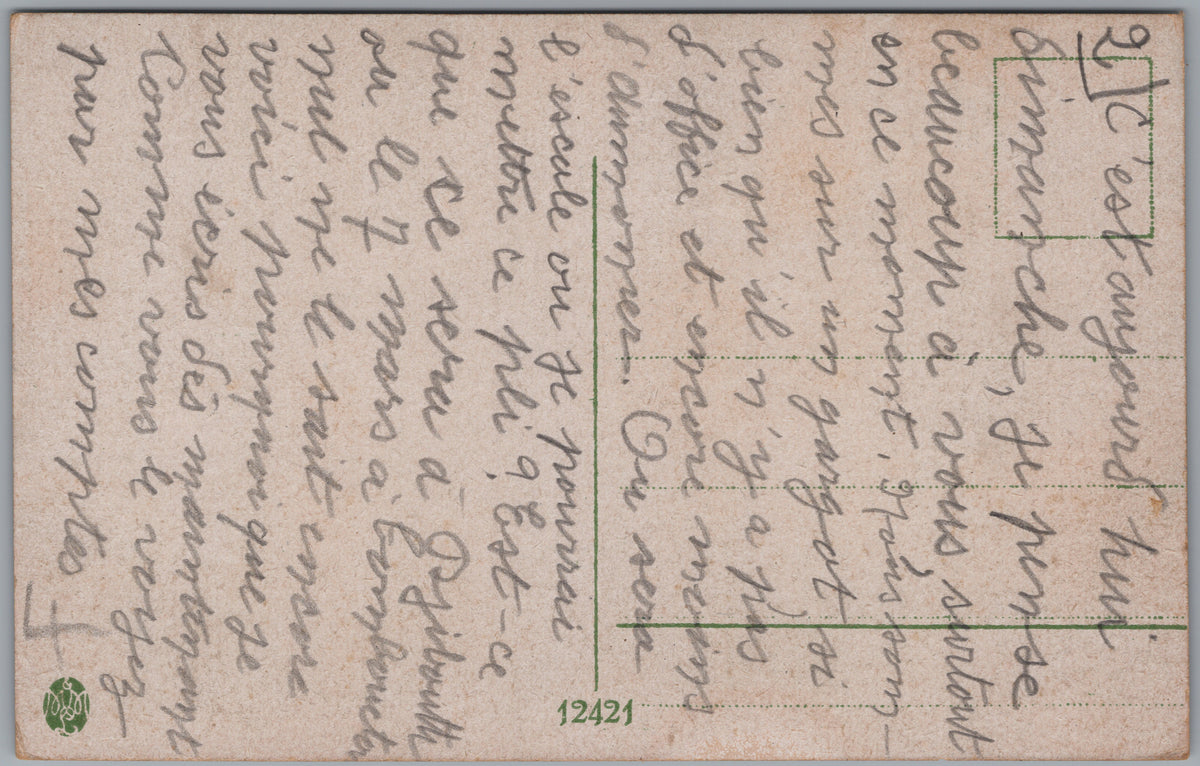 2) C'est aujourd'hui
dimanche, je pense
beaucoup à vous surtout
en ce moment. Nous som-
mes sur un gargot si
bien qu'il n'y a pas
d'office et encore moins
d'aumonier. Ou sera
l'escale ou je pourrai
mettre ce pli? Est-ce
que ce sera à Djibouti
ou le 7 mars à
nul ne le sait encore
voici pourquoi que je
vous écris dès maintenant
Comme vous le voyez
par mes comptes
12421